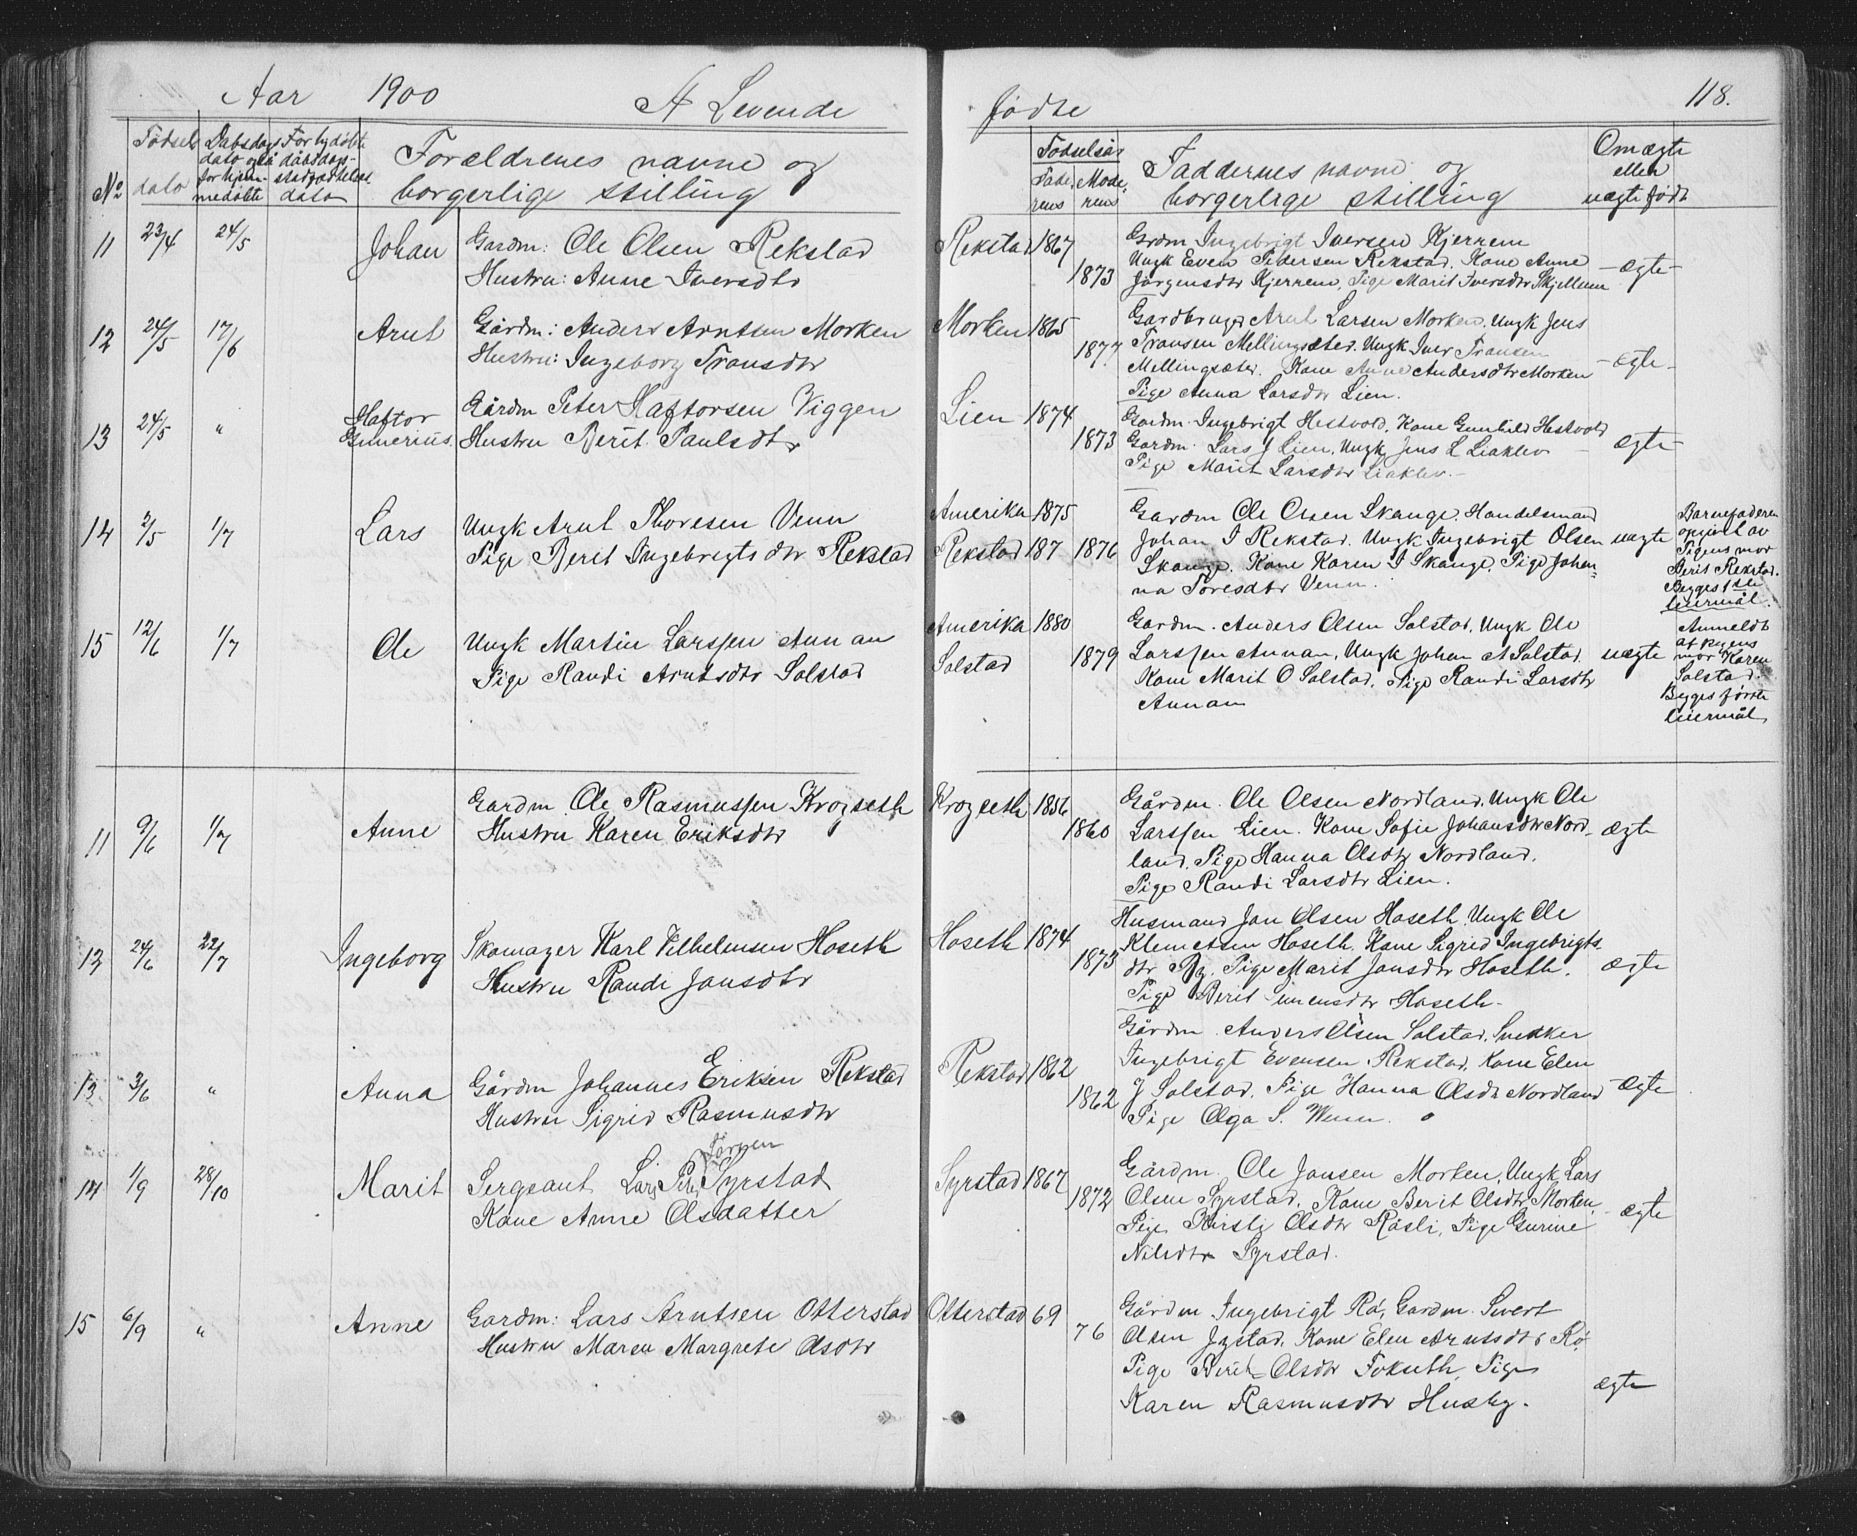 Aar 1900 A Levende
fødte 118.
No
Fødsels
dato
Dabsdags
dato også
for hjem-
medøbte
For hjdøbte
dåbsdags-
stadfæstelses
dato
Forældrenes navne og
borgerlige stilling
Fødselsår
Fade-
rens
Mode-
rens
Faddernes navne og
borgerlige stilling
Om ægte
eller
uægte født
11 23/4 24/5 Johan Gardm: Ole Olsen Rekstad
Hustru: Anne Iversdtr
Rekstad 1867 1873
Grdm Ingebrigt Iversen Kjerrem
Ungk Even Pedersen Rekstad. Kone Anne
Jørgensdtr Kjerrem, Pige Marit Iversdtr Skjellum
ægte
12 24/5 17/6 Arnt Gårdm: Anders Arntsen Morken
Hustru: Ingeborg Fransdtr
Morken 1865 1877
Gardbruger Arnt Larsen Morken, Ungk Jens
Fransen Mellingsæter. Ungk Iver Fransen
Mellingsæter. Kone Anne Andersdtr Morken
Pige Anna Larsdtr Lien.
ægte
13 24/5 " Haftor
Gunerius. Gårdm Peter Haftorsen Viggen
Hustru Berit Paulsdtr
Lien 1874 1873
Gardm Ingebrigt Hestvold, Kone Gunhild Hestvold
Gardm. Lars J Lien, Ungk Jens L Leaklev
Pige Marit Larsdtr Leaklev.
ægte
14 2/5 1/7 Lars Ungk Arnt Thoresen Venn
Pige Berit Ingebrigtsdtr Rekstad
Amerika 1875
Rekstad 187 1876
Gardm Ole Olsen Skauge. Handelsmand
Johan I Rekstad. Ungk Ingebrigt Olsen
Skauge. Kone Karen I Skauge. Pige Johan-
na Toresdtr Venn.
uægte
Barnefaderen
opgivet av
Pigens mor
Berit Rekstad.
Begges 1ste
leiermål.
15 12/6 1/7 Ole Ungk Martin Larssen Annan
Pige Randi Arntsdtr Solstad
Amerika 1880
Solstad 1879
Gardm. Anders Olsen Solstad, Ungk Ole
Larssen Annan, Ungk Johan A Solstad.
Kone Marit O Solstad, Pige Randi Larsdtr
Annan
uægte
Anmeldt
af Pigens
mor Karen
Solstad.
Begges første
leiermål,
11 9/6 1/7 Anne Gardm Ole Rasmussen Krogseth
Hustru Karen Eriksdtr
Krogseth 1856 1860
Gårdm. Ole Olsen Nordland, Ungk Ole
Larssen Lien. Kone Sofie Johansdtr Nord-
land, Pige Hanna Olsdtr Nordland.
Pige Randi Larsdtr Lien.
ægte
12 24/6 22/7 Ingeborg Skomager Karl Vilhelmsen Hoseth
Hustru Randi Jonsdtr
Hoseth 1874 1873
Husmand Jon Olsen Hoseth. Ungk Ole
Klemetsen Hoseth. Kone Sigrid Ingebrigts
dtr Pige Marit Jonsdtr Hoseth.
Pige Berit Simensdtr Hoseth.
ægte
13 3/6 " Anna Gårdm Johannes Eriksen Rekstad
Hustru Sigrid Rasmusdtr
Rekstad 1862 1862
Gårdm. Anders Olsen Solstad, Snekker
Ingebrigt Evensen Rekstad, Kone Elen
J Solstad. Pige Hanna Olsdtr Nordland
Pige Olga S. Wenn.
ægte
14 1/9 28/10 Marit Sergeant Lars Syrstad
Kone Anne Olsdatter
Syrstad 1867 1872
Gårdm. Ole Jonsen Morken, Ungk Lars
Olsen Syrstad. Kone Berit Olsdtr Morken
Pige Kirsti Olsdtr Råsli, Pige Gurine
Nilsdtr Syrstad.
ægte
15 6/9 " Anne Gardm: Lars Arntsen Otterstad
Hustru Maren Margrete Olsdtr
Otterstad 69 76
Gårdm Ingebrigt Rø, Gardm. Sivert
Olsen Jystad. Kone Elen Arntsdtr Rø
Pige Berit Olsdtr Fokseth Pige
Karen Rasmusdtr Husby.
ægte